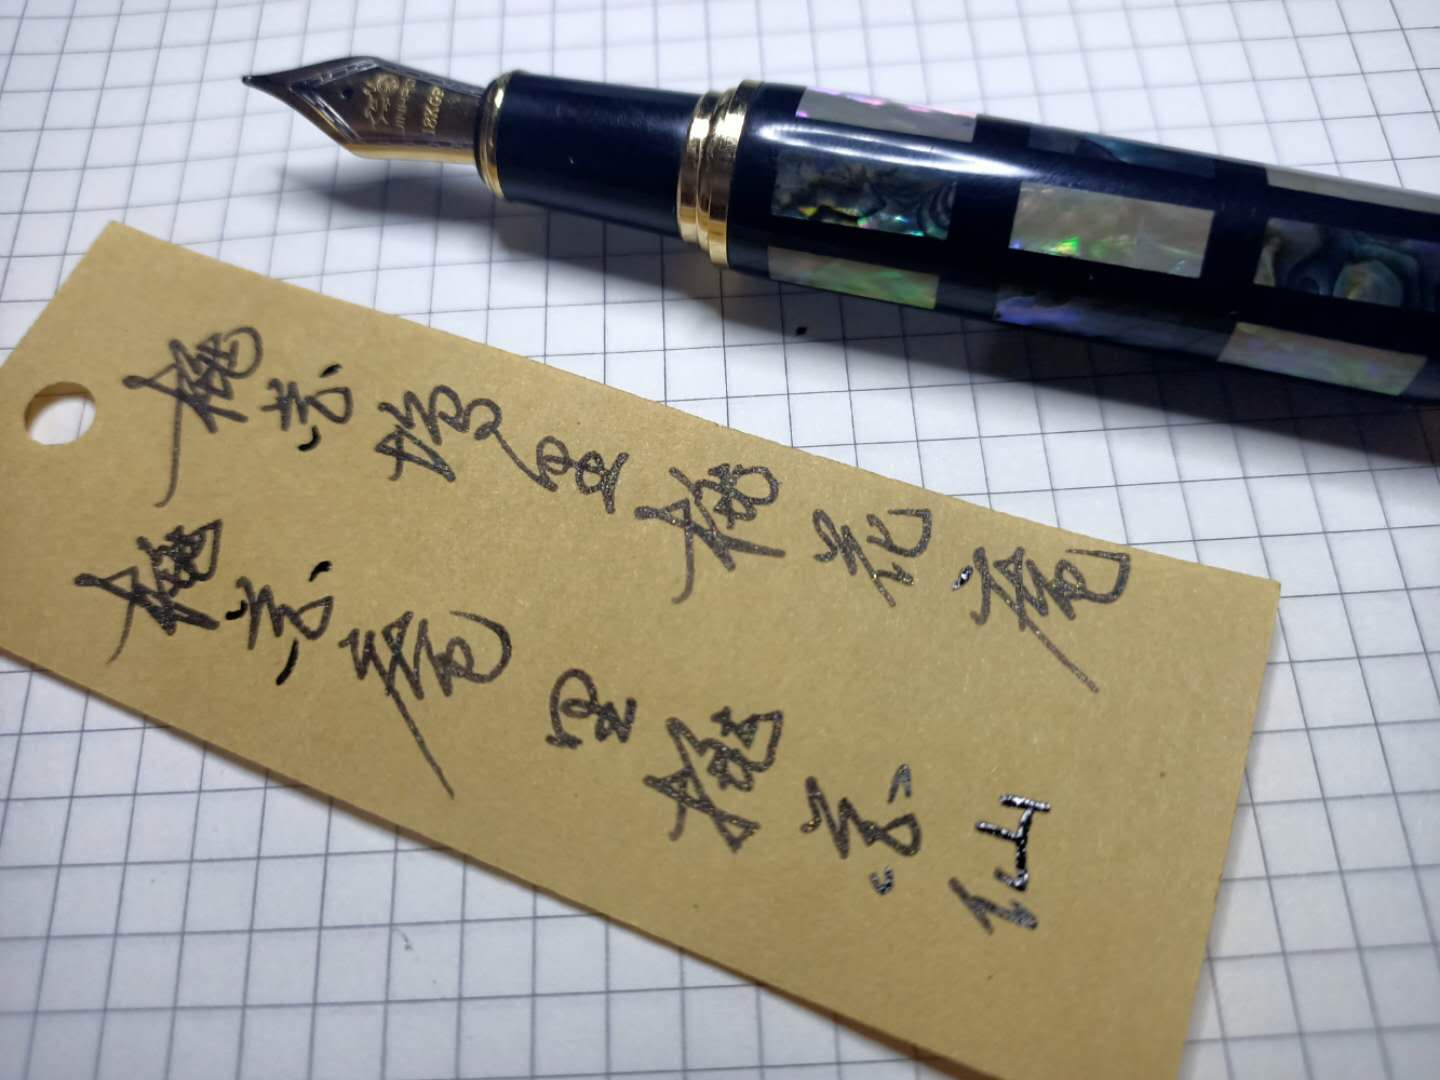 JINHAO
18KGP
桃花坞里桃花庵
桃花庵里桃花仙